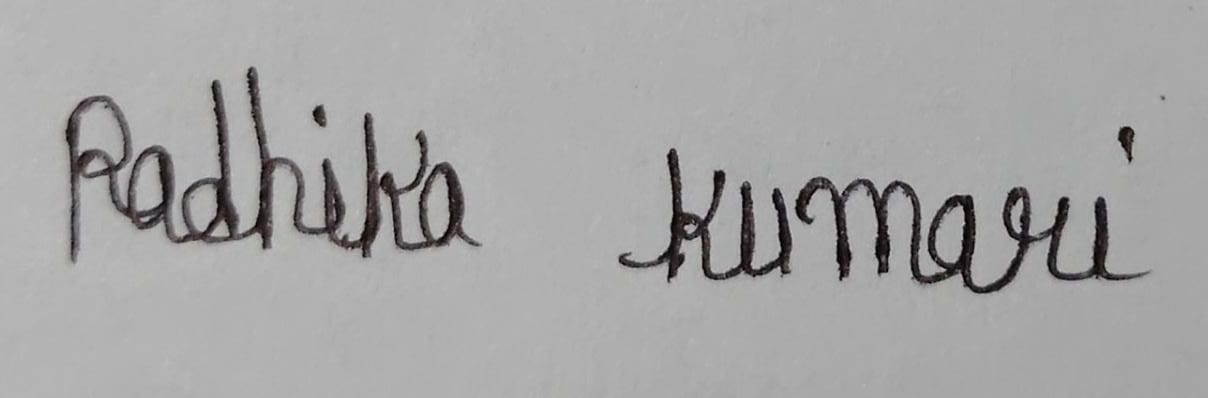 Radhika kumari